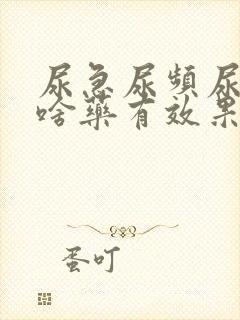 尿急尿頻尿
啥藥有效果
蛋叮